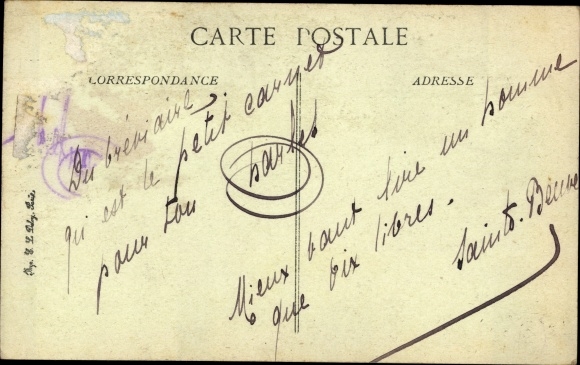 CARTE POSTALE
CORRESPONDANCE
ADRESSE
Du bréviaire,
qui est le petit carnet
pour ton
Mieux vaut lire un homme
que dix livres.
Sainte-Beuve